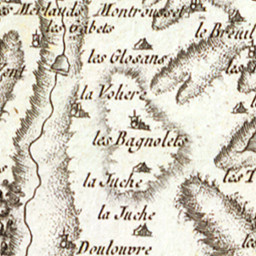 les Merlauds Montrousset
les Gabets
le Breuil
les Glosans
la Vohere
les Bagnolets
la Juche
les T
la Juche
les
Doulouvre